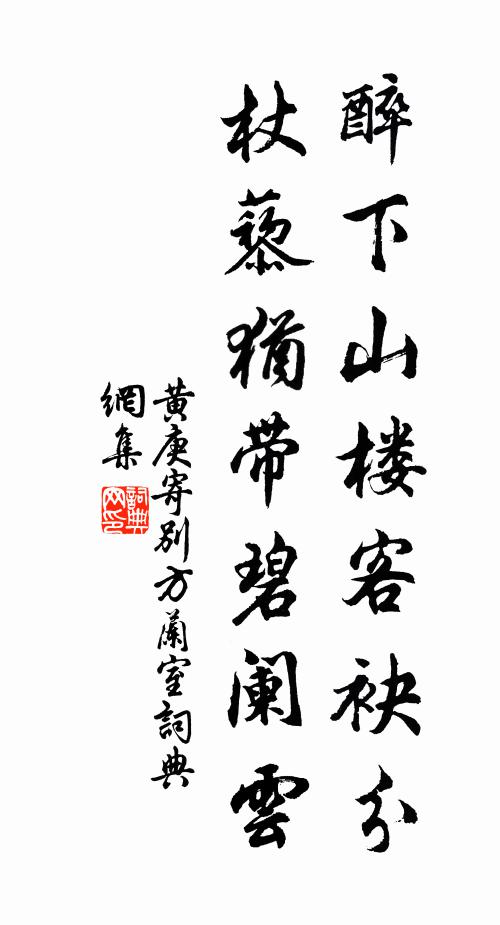 醉下山楼客袂分
杖藜猶带碧阑雲
黄庚寄别方蘭室詞典
網集
詞典
网印